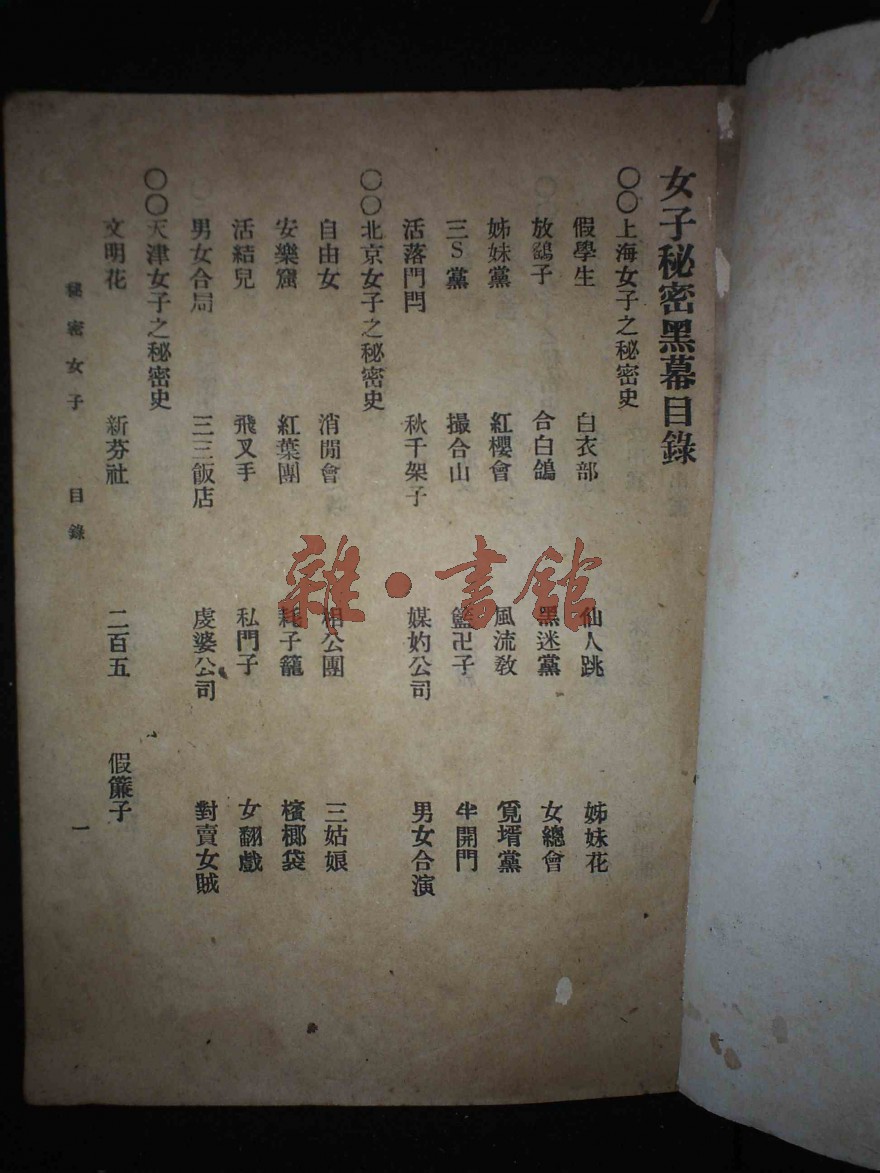 女子秘密黑幕目錄
〇〇上海女子之秘密史
假學生 白衣部 仙人跳 姊妹花
放鷂子 合白鴿 黑迷黨 女總會
姊妹黨 紅櫻會 風流教 覓壻黨
三S黨 撮合山 籃卍子 半開門
活落門閂 秋千架子 媒妁公司 男女合演
〇〇北京女子之秘密史
自由女 消閒會 相公團 三姑娘
安樂窟 紅葉團 耗子籠 檳榔袋
活結兒 飛叉手 私門子 女翻戲
男女合局 三三飯店 虔婆公司 對賣女賊
〇〇天津女子之秘密史
文明花 新芬社 二百五 假簾子
秘密女子 目錄 一
雜·書館